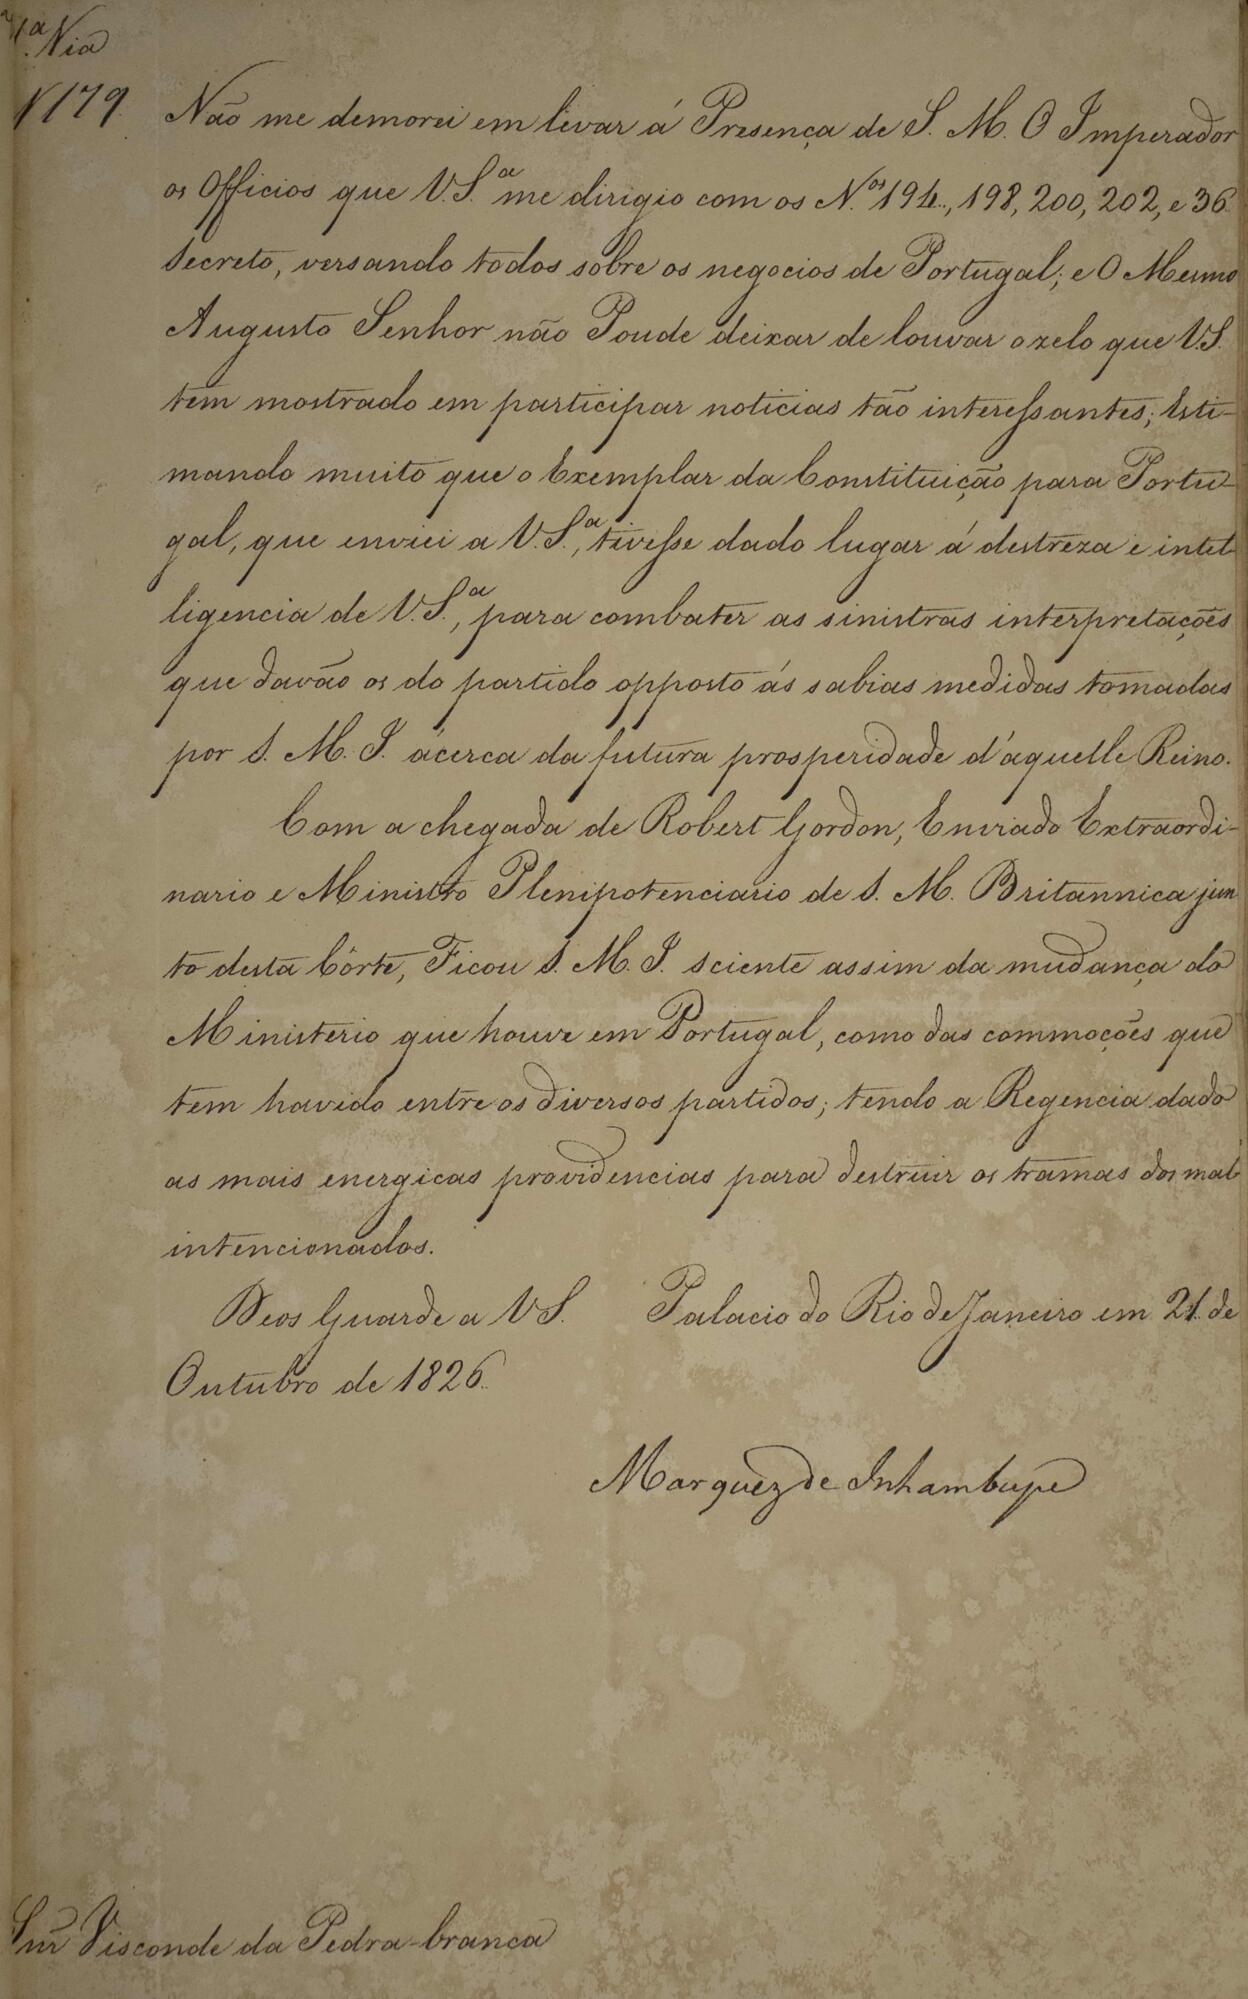 1ª Via
N 179.
Não me demorei em levar á Presença de S. M. O Imperador
os Officios que V.S.ª me dirigio com os N.os 194., 198, 200, 202, e 36
Secreto, versando todos sobre os negocios de Portugal; e O Mesmo
Augusto Senhor não Poude deixar de louvar o zelo que V.S.
tem mostrado em participar noticias tão interessantes; Esti-
mando muito que o Exemplar da Constituição para Portu-
gal, que enviei a V.S.ª, tivesse dado lugar á destreza e intel-
ligencia de V.S.ª, para combater as sinistras interpretações
que davão os do partido opposto ás sabias medidas tomadas
por S. M. I. ácerca da futura prosperidade d'aquelle Reino.
Com a chegada de Robert Gordon, Enviado Extraordi-
nario e Ministro Plenipotenciario de S. M. Britannica jun
to desta Côrte, Ficou S. M. I. sciente assim da mudança do
Ministerio que houve em Portugal, como das commoções que
tem havido entre os diversos partidos; tendo a Regencia dado
as mais energicas providencias para destruir os tramas dos mal
intencionados.
Deos Guarde a V S. Palacio do Rio de Janeiro em 21. de
Outubro de 1826.
Marquez de Inhambupe
Snr Visconde da Pedra-branca